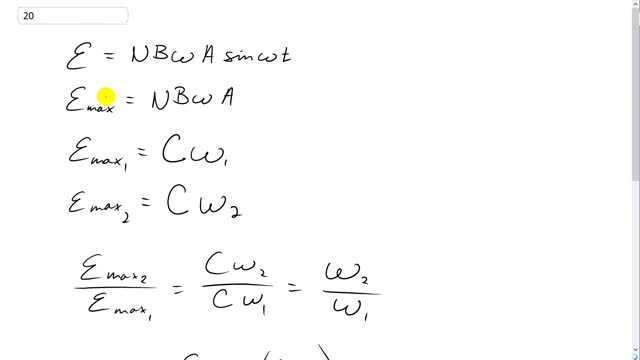 20
ℰ = NBωA sinωt
ℰmax = NBωA
ℰmax₁ = Cω₁
ℰmax₂ = Cω₂
ℰmax₂ / ℰmax₁ = Cω₂ / Cω₁ = ω₂ / ω₁